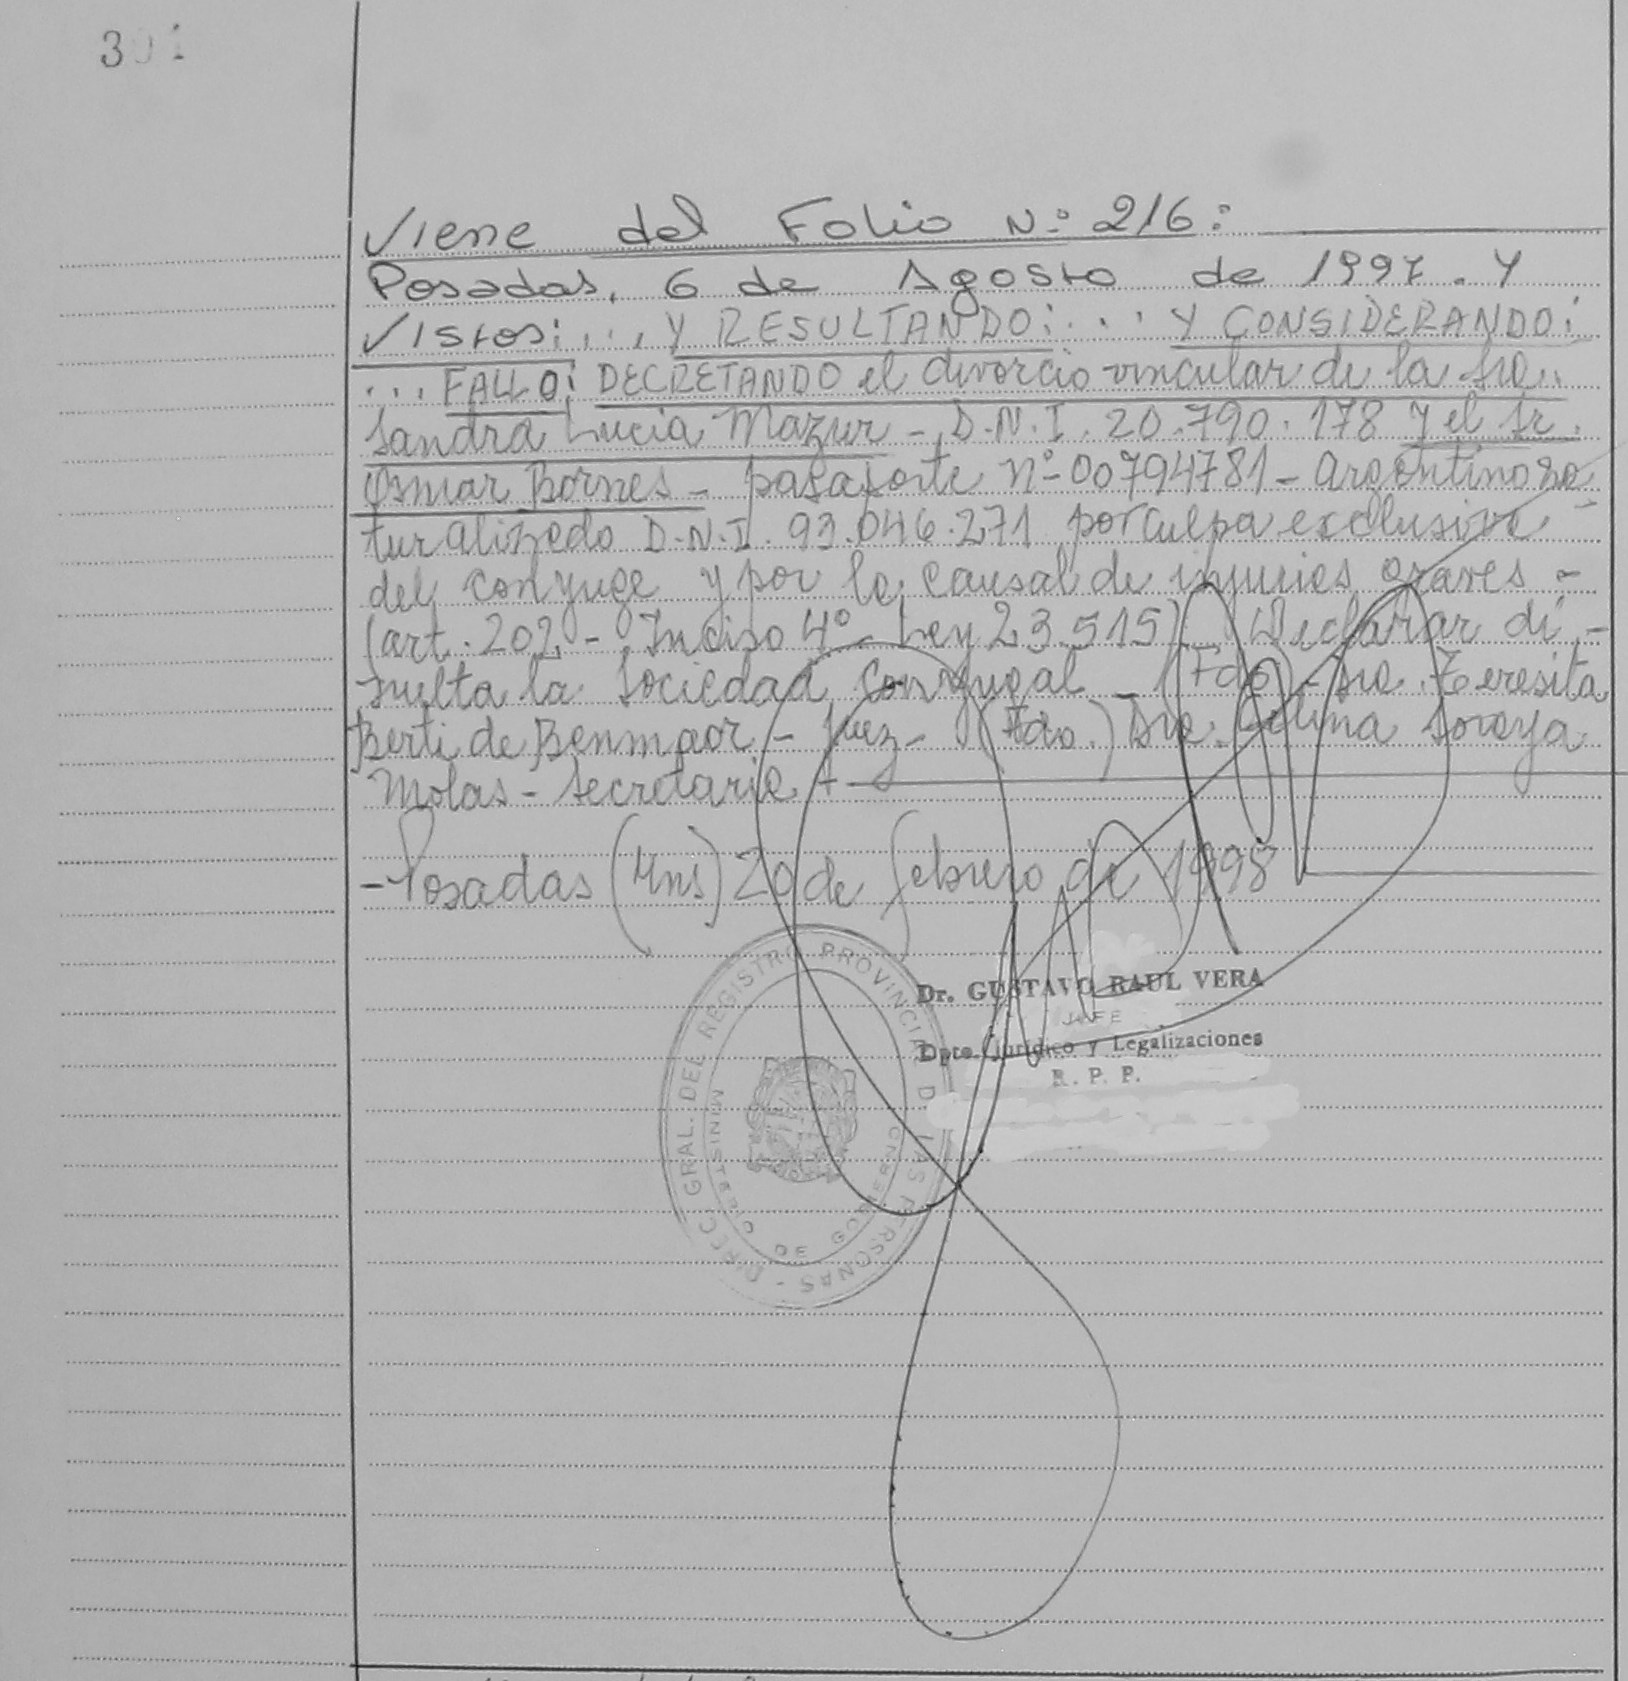 301
Viene del Folio N:° 216:
Posadas, 6 de Agosto de 1997. Y
Vistos:... Y RESULTANDO:... Y CONSIDERANDO:
... FALLO: DECRETANDO el divorcio vincular de la sra.
Sandra Lucia Mazur - D.N.I. 20.790.178 y el Sr.
Osmar Bornes - pasaporte n°-00794781 - Argentino na
turalizado D.N.I. 93.046.271 por culpa exclusiva -
del conyuge y por la causal de injurias graves -
(art. 202 - Inciso 4° - Ley 23.515) Declarar di -
suelta la Sociedad Conyugal - (Fdo) - Dra. Teresita
Berti de Benmaor - Juez - (Fdo.) Dra. Celina Soraya
Molas - Secretaria +
- Posadas (Mns) 20 de febrero de 1998
Dr. GUSTAVO RAUL VERA
JEFE
Dpto. Jurídico y Legalizaciones
R. P. P.
DIREC. GRAL. DEL REGISTRO PROVINCIAL DE LAS PERSONAS -
MINISTERIO DE GOBIERNO